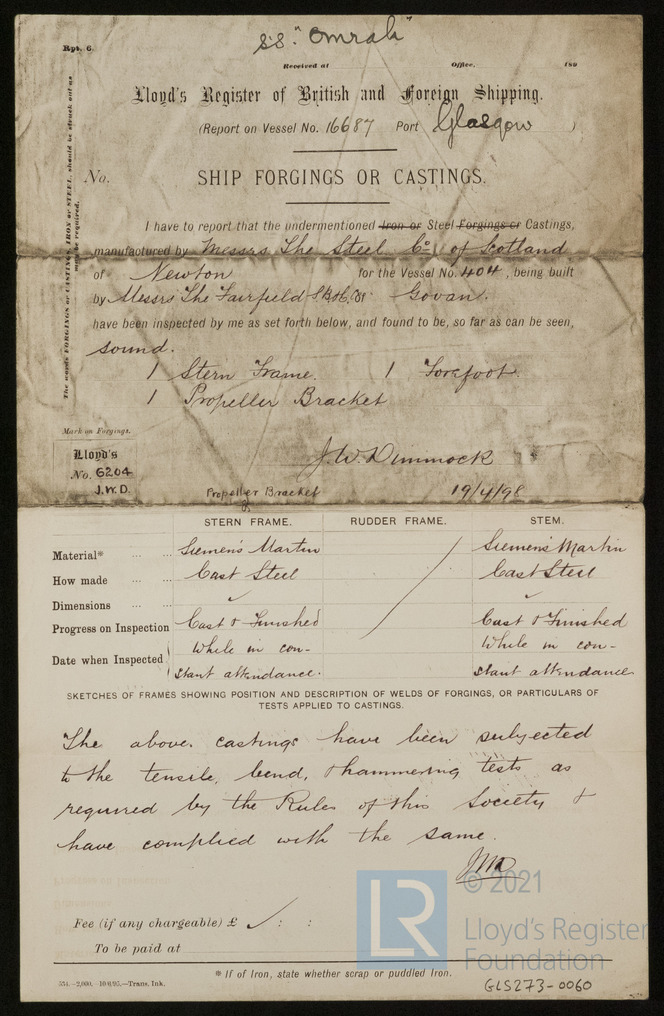 s.s. "Omrah"
Rpt. 6.
Received at Office, 189
Lloyd's Register of British and Foreign Shipping.
(Report on Vessel No. 16687 Port Glasgow )
No. SHIP FORGINGS OR CASTINGS.
The words FORGINGS or CASTINGS, IRON or STEEL, should be struck out as may be required.
I have to report that the undermentioned Iron or Steel Forgings or Castings,
manufactured by Messrs The Steel Co. of Scotland
of Newton for the Vessel No. 404, being built
by Messrs The Fairfield S.B. & E. Co. Govan.
have been inspected by me as set forth below, and found to be, so far as can be seen,
sound.
1 Stern Frame. 1 Forefoot.
1 Propeller Bracket
Mark on Forgings.
Lloyd's
No. 6204
J.W.D.
J.W. Dimmock
19/4/98
Propeller Bracket
&
STERN FRAME. RUDDER FRAME. STEM.
Material* Siemens Martin Siemens Martin
How made Cast Steel Cast Steel
Dimensions
Progress on Inspection Cast & Finished Cast & Finished
Date when Inspected While in con- While in con-
stant attendance. stant attendance
SKETCHES OF FRAMES SHOWING POSITION AND DESCRIPTION OF WELDS OF FORGINGS, OR PARTICULARS OF
TESTS APPLIED TO CASTINGS.
The above castings have been subjected
to the tensile, bend, & hammering tests as
required by the Rules of this Society &
have complied with the same.
Fee (if any chargeable) £ : :
To be paid at
* If of Iron, state whether scrap or puddled Iron.
554.-2,000.-10/6/95.-Trans. Ink.
LR © 2021
Lloyd's Register
Foundation
GLS273-0060